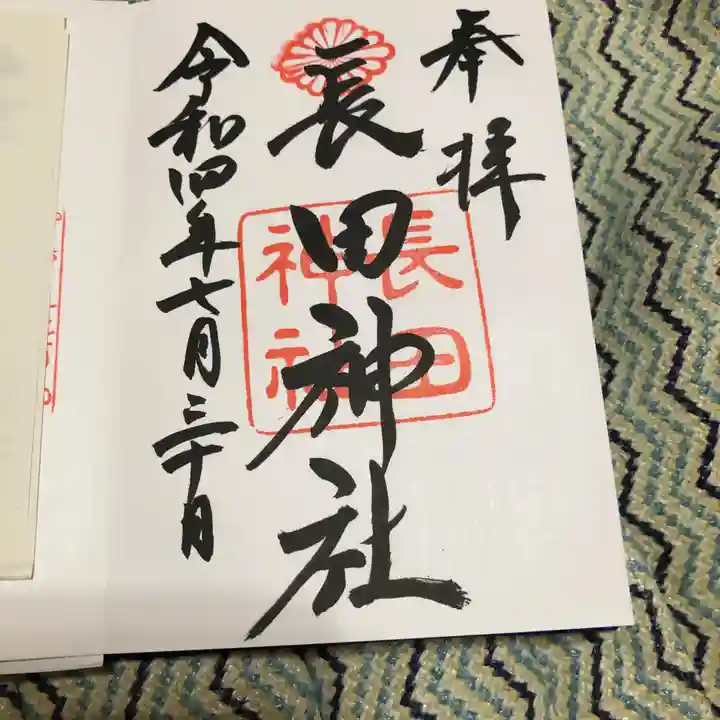 奉拝
長田神社
長田
神社
令和四年七月三十日